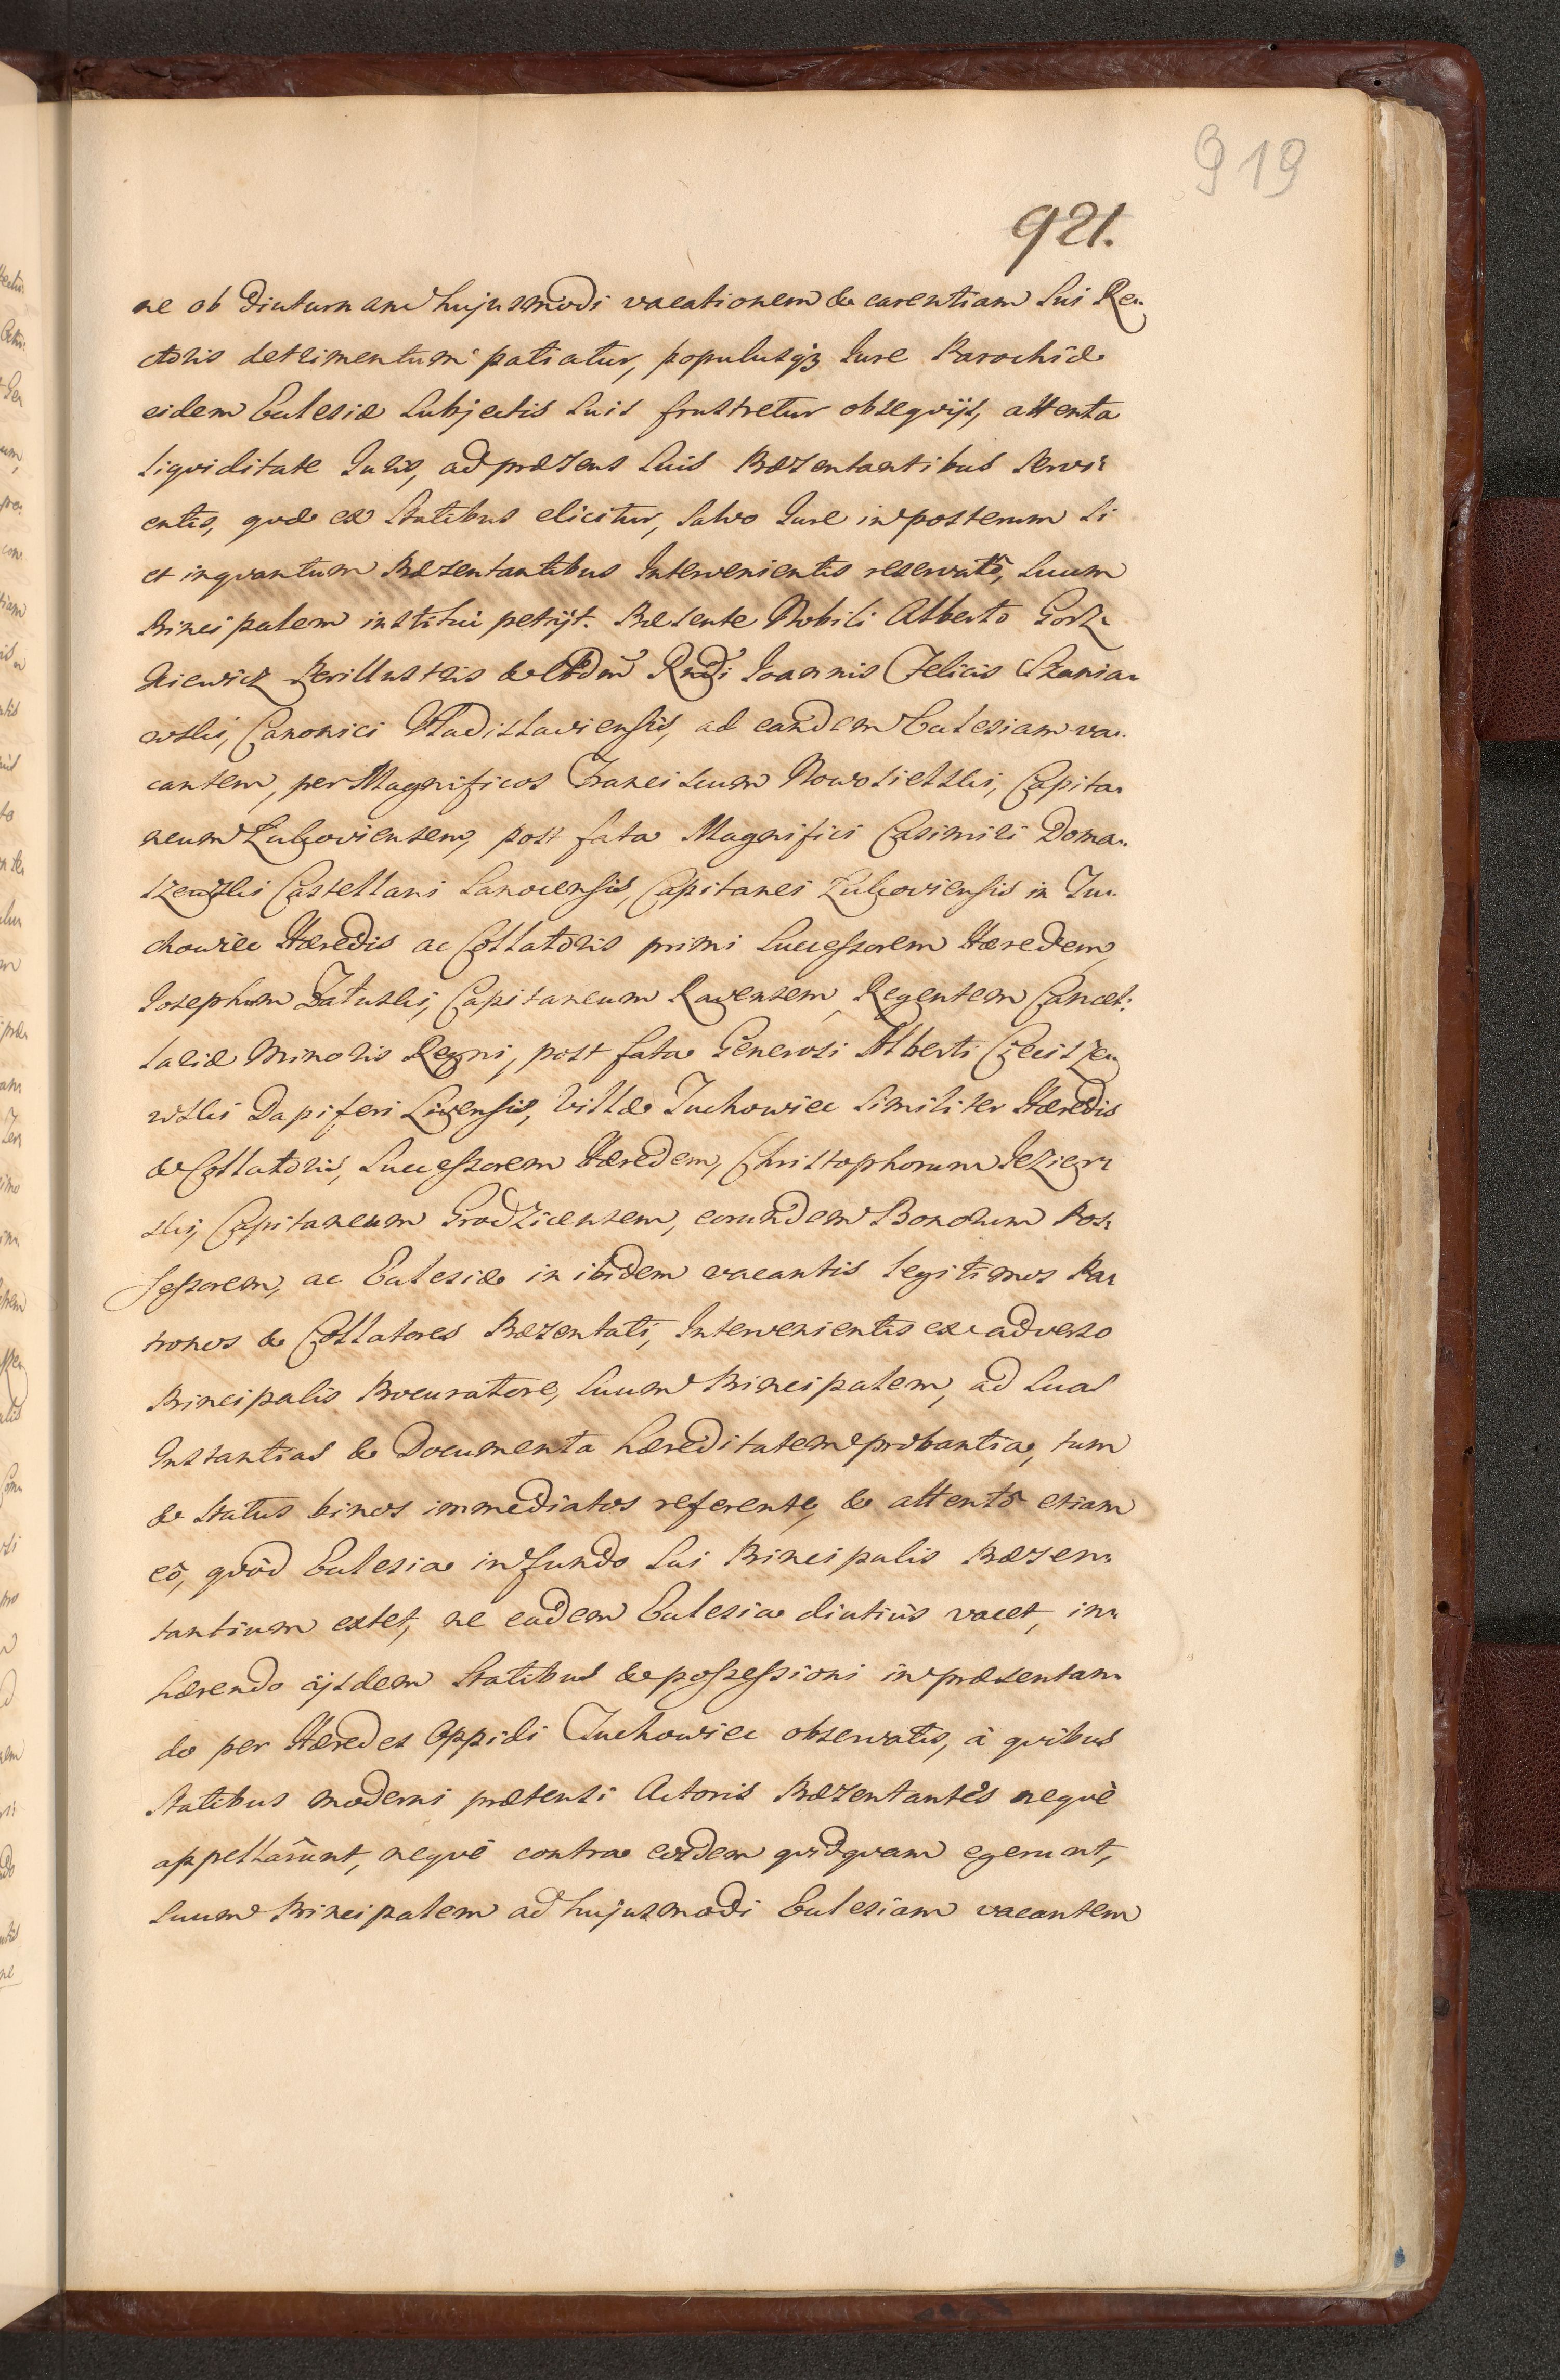 919
921.
ne ob diuturnam hujusmodi vacationem & carentiam sui Re„
ctoris detrimentum patiatur, populusqꝫ Jure Parochiæ
eidem Ecclesiæ subjectis suis frustretur obsequijs, attenta
liquiditate Juris, ad præsens suis Præsentantibus servi„
entis, quæ ex Statibus elicitur, salvo Jure in posterum si
et inquantum Præsentantibus Intervenientis reservatô, suum
Principalem institui petijt. Præsente Nobili Alberto Gorz„
kiewicz Perillustris & Adm Rndi Joannis Felicis Szania„
wski, Canonici Vladislaviensis, ad eandem Ecclesiam va„
cantem, per Magnificos Franciscum Nowosielski, Capita„
neum Lukoviensem, post fata Magnifici Casimiri Doma„
szewski Castellani Lanocensis, Capitanei Lukoviensis in Tu„
chowiec Hæredis ac Collatoris primi Successorem Hæredem,
Josephum Zaluski, Capitaneum Ravensem, Regentem Cancel„
lariæ Minoris Regni, post fata Generosi Alberti Ciecisze„
wski Dapiferi Livensis, Villæ Tuchowiec similiter Hæredis
& Collatoris, Successorem Hæredem, Christophorum Jezier„
ski, Capitaneum Grodzicensem, eorundem Bonorum Pos„
sessorem, ac Ecclesiæ inibidem vacantis legitimos Pa„
tronos & Collatores Præsentati, Intervenientis ex adverso
Principalis Procuratore, suum Principalem, ad suas
Instantias & Documenta hæreditatem probantia, tum
& Status binos immediatos referente, & attentô etiam
eô, quôd Ecclesia in fundo sui Principalis Præsen„
tantium extet, ne eadem Ecclesia diutiùs vacet, in„
hærendo ijsdem Statibus & possessioni in præsentan„
do per Hæredes Oppidi Tuchowiec observatis, à quibus
Statibus moderni prætensi Actoris Præsentantes nequè
appellârunt, nequè contra eosdem quidquam egerunt,
suum Principalem ad hujusmodi Ecclesiam vacantem